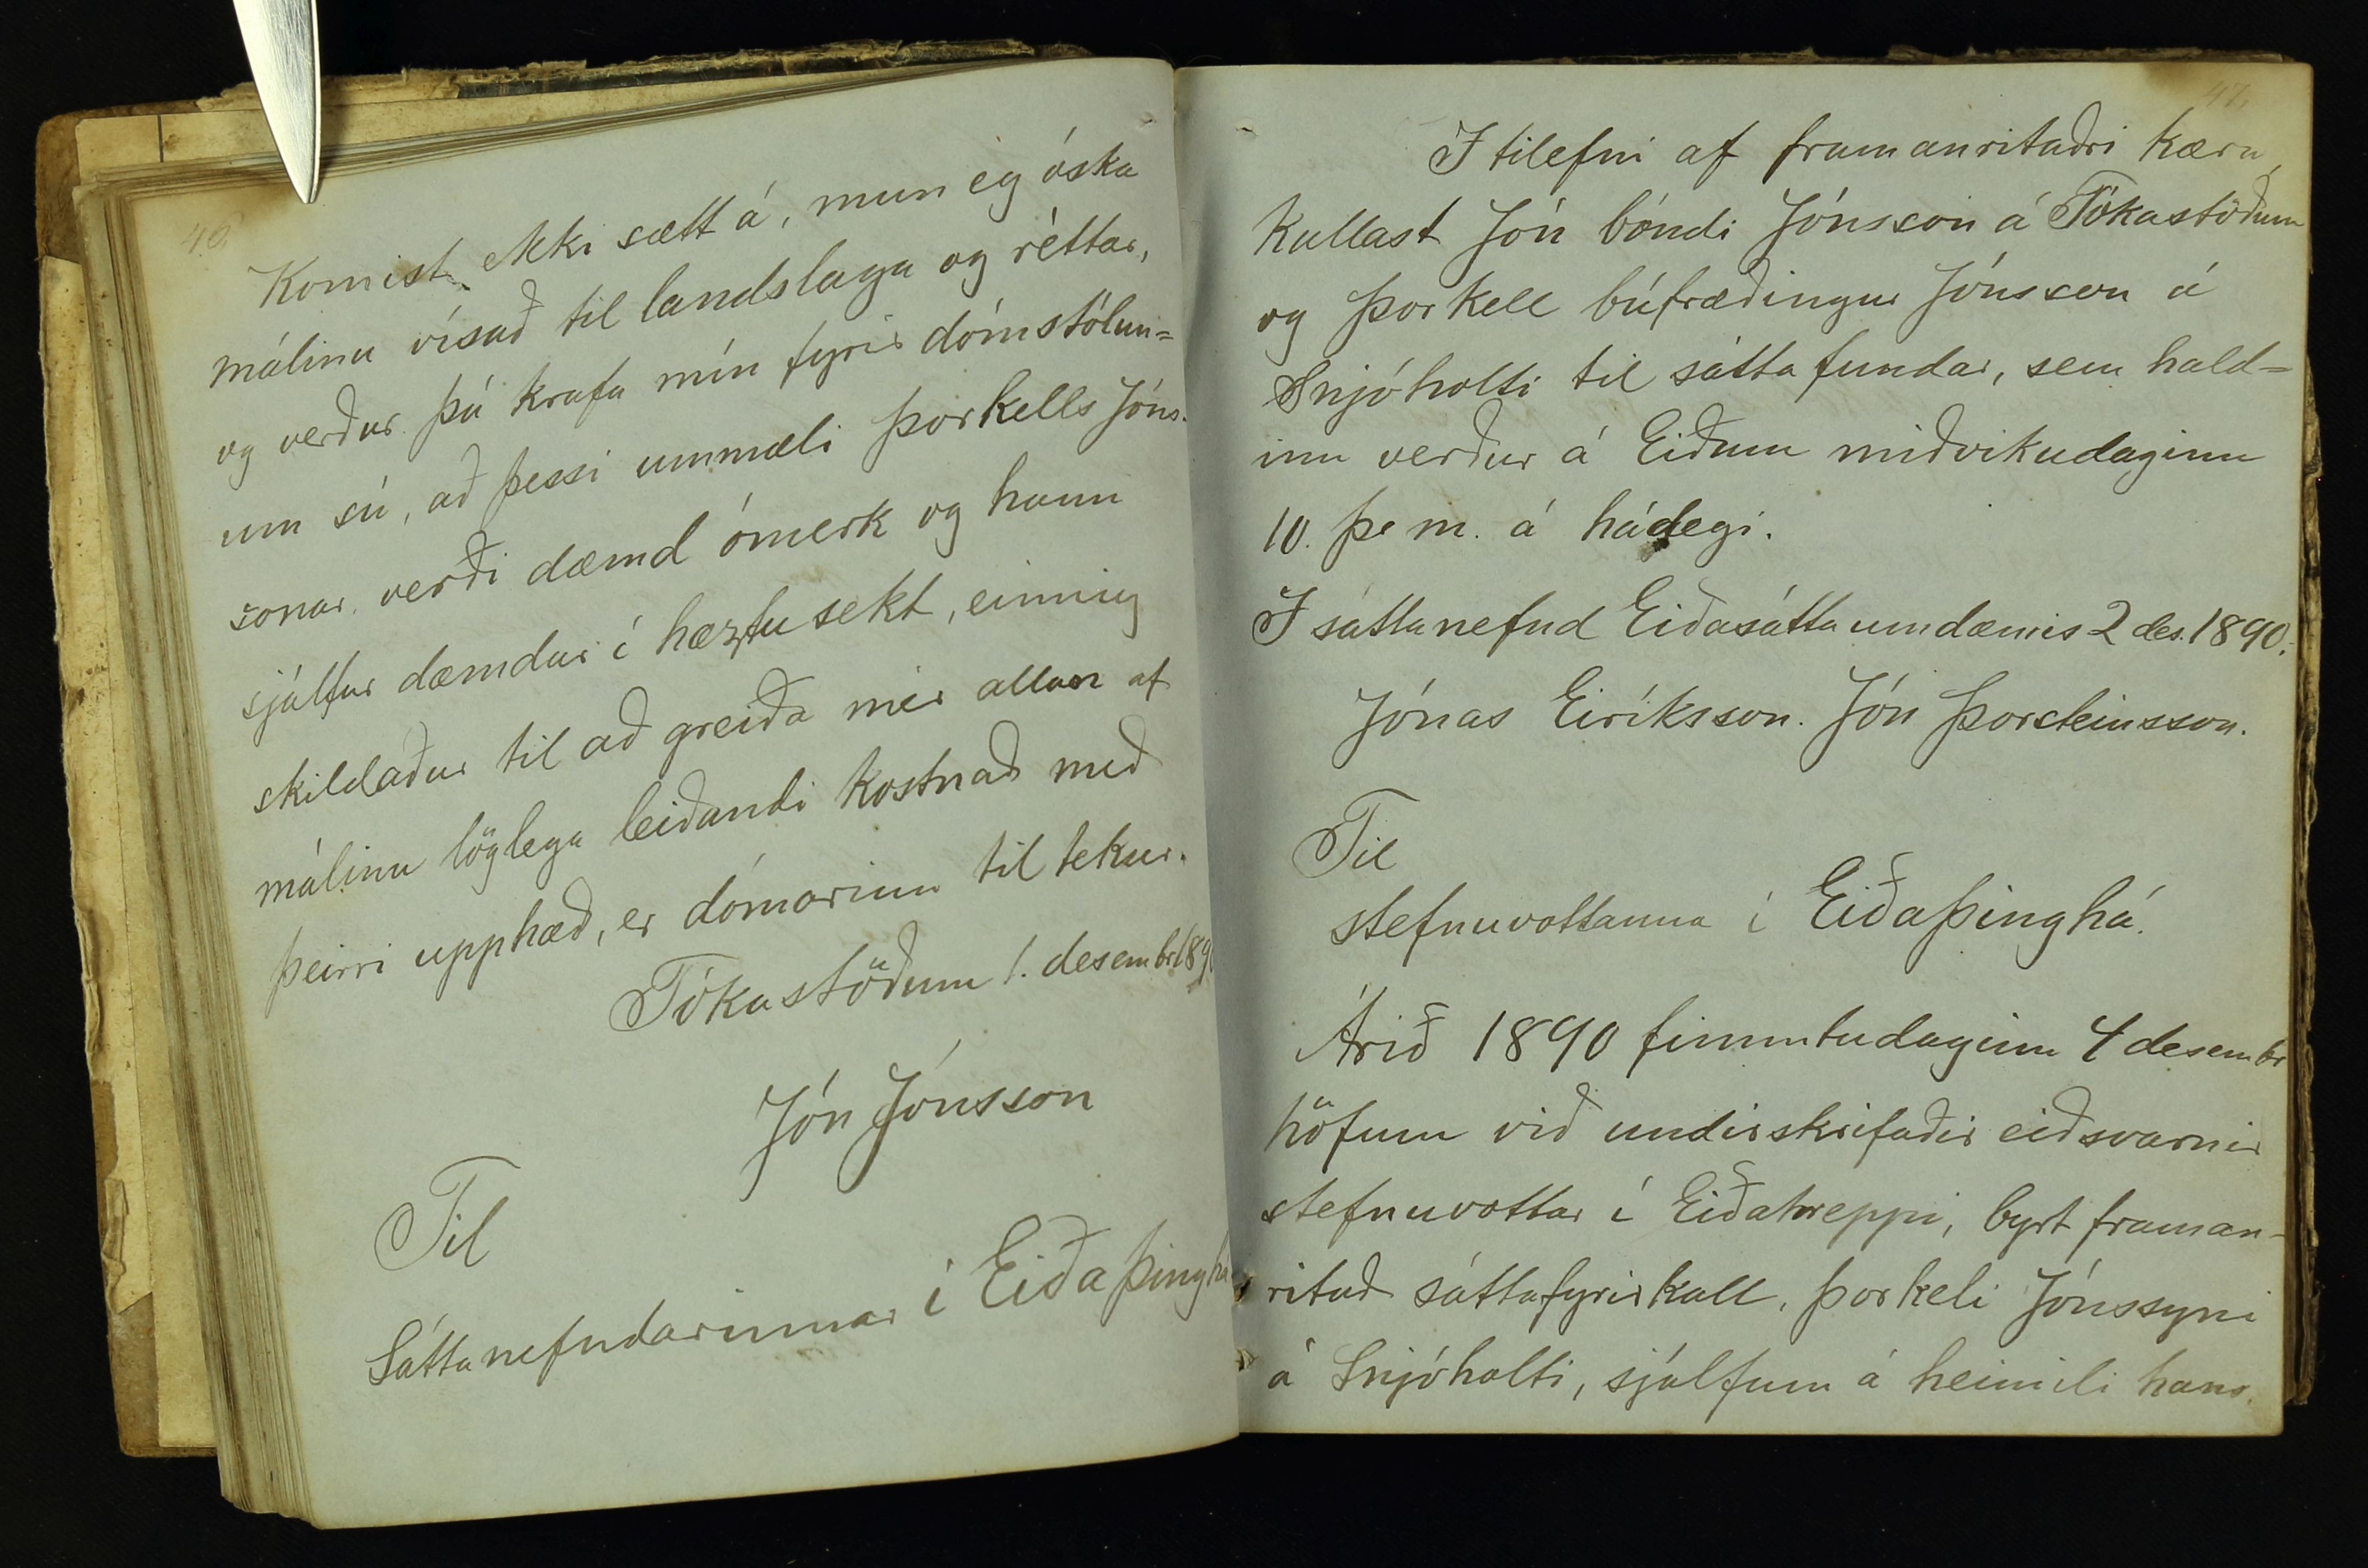 46.
Komist ekki sætt á, mun eg óska
málinu vísað til landslaga og réttar,
og verður þá krafa mín fyrir dómstólun=
um sú, að þessi ummæli Þorkells Jóns-
sonar verði dæmd ómerk og hann
sjálfur dæmdur í hæztu sekt, einnig
skildaður til að greiða mér allan af
málinu löglega leiðandi kostnað með
þeirri upphæð, er dómarinn til tekur.
Tókastöðum 1. desembr 189
Jón Jónsson
Til
Sáttanefndarinnar í Eiðaþinghá
47.
I tilefni af framanritaðri kæru,
kallast Jón bóndi Jónsson á Tókastöðum
og Þorkell búfræðingur Jónsson á
Snjóholti til sáttafundar, sem hald=
inn verður á Eiðum miðvikudaginn
10. þ. m. á hádegi.
I sáttanefnd Eiðasáttaumdæmis 2 des. 1890.
Jónas Eiríksson. Jón Þorsteinsson.
Til
stefnuvottanna í Eiðaþinghá.
Árið 1890 fimmtudaginn 4 desembr
höfum við undirskrifaðir eiðsvarnir
stefnuvottar í Eiðahreppi, byrt framan-
ritað sáttafyrirkall, Þorkeli Jónssyni
á Snjóholti, sjálfum á heimili hans.